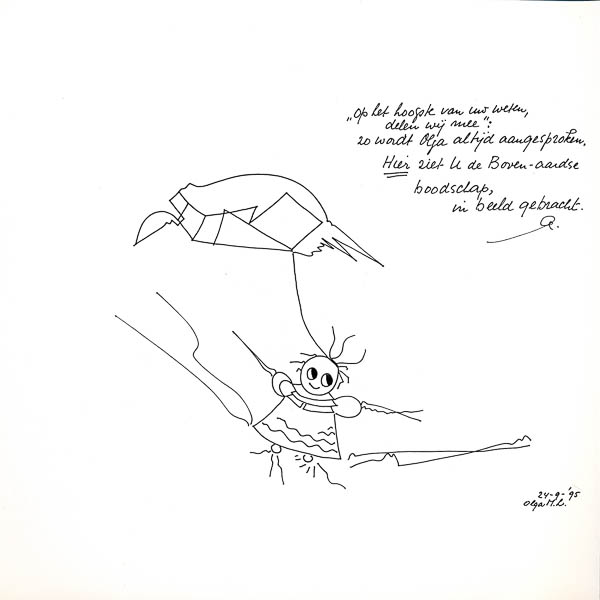 „Op het hoogste van uw weten,
delen wij mee":
zo wordt Olga altijd aangesproken.
Hier ziet U de Boven-aardse
boodschap,
in beeld gebracht.
24-9-'95
Olga H.L.